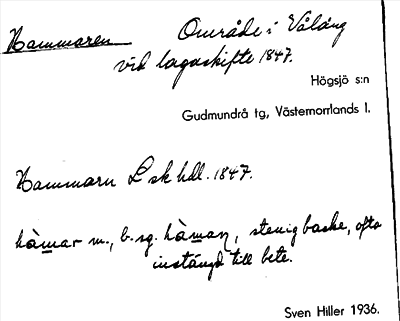 Hammaren Område i Vålång
vid lagaskifte 1847.
Högsjö s:n
Gudmundrå tg, Västernorrlands l.
Hammarn L sk hdl. 1847.
hàmar m., b. sg. hàman, stenig backe, ofta
instängd till bete.
Sven Hiller 1936.